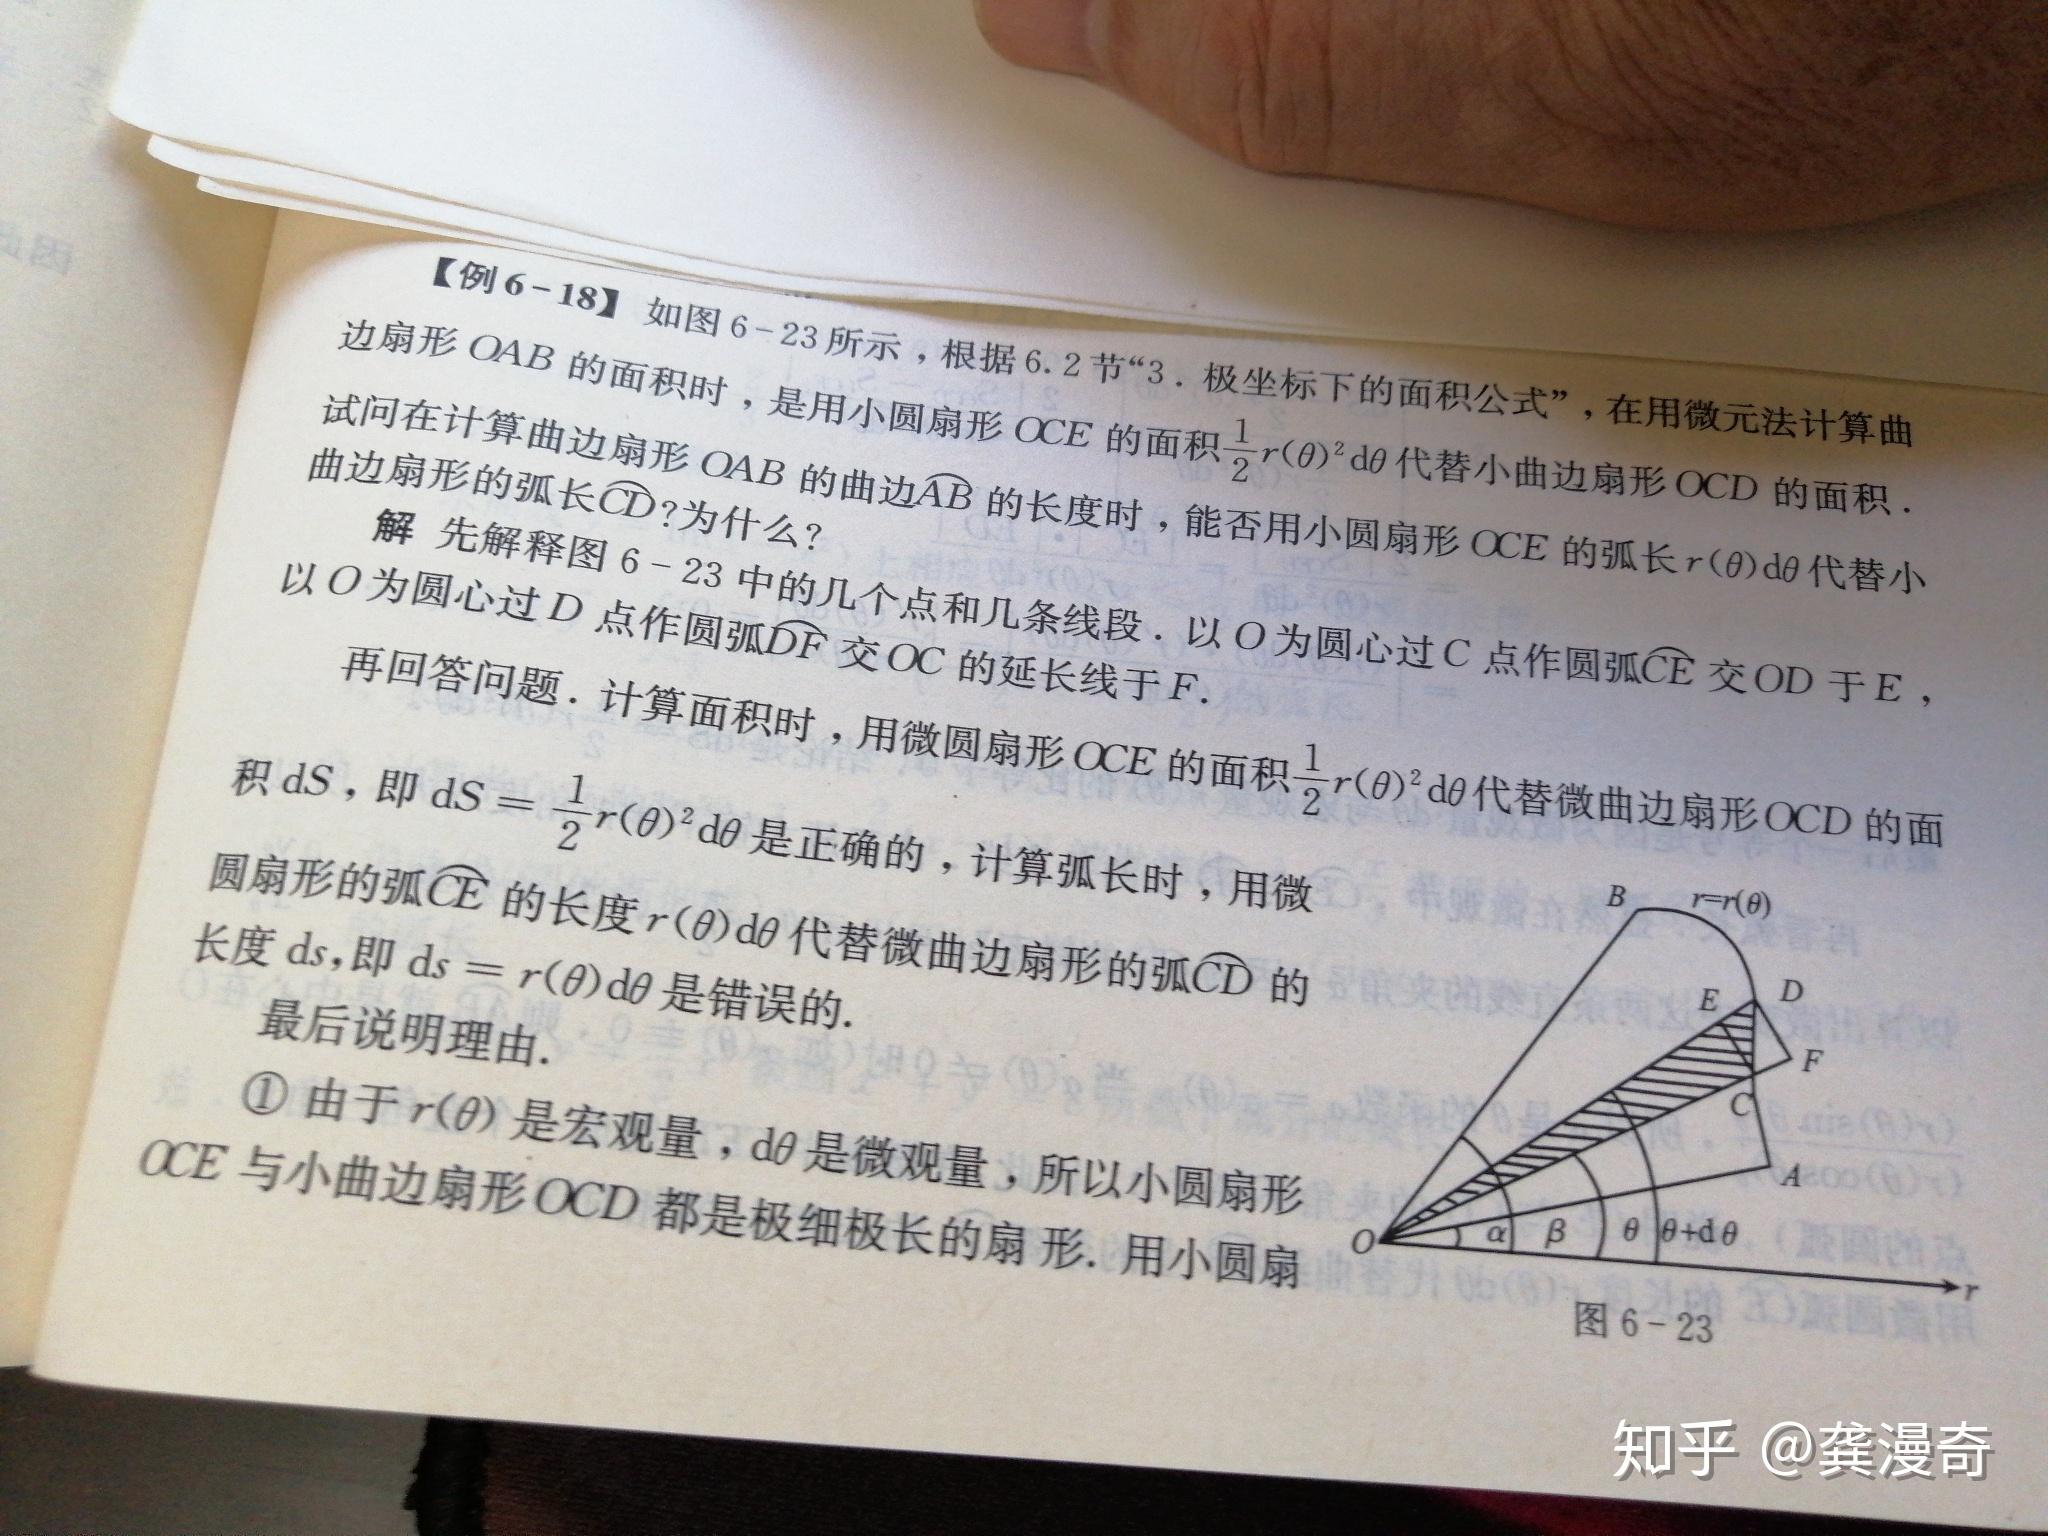 【例6-18】 如图6-23所示，根据6.2节“3.极坐标下的面积公式”，在用微元法计算曲
边扇形OAB的面积时，是用小圆扇形OCE的面积\frac{1}{2}r(θ)²dθ代替小曲边扇形OCD的面积.
试问在计算曲边扇形OAB的曲边\overset{\frown}{AB}的长度时，能否用小圆扇形OCE的弧长r(θ)dθ代替小
曲边扇形的弧长\overset{\frown}{CD}?为什么?
解 先解释图6-23中的几个点和几条线段.以O为圆心过C点作圆弧\overset{\frown}{CE}交OD于E，
以O为圆心过D点作圆弧\overset{\frown}{DF}交OC的延长线于F.
再回答问题.计算面积时，用微圆扇形OCE的面积\frac{1}{2}r(θ)²dθ代替微曲边扇形OCD的面
积dS，即dS=\frac{1}{2}r(θ)²dθ是正确的，计算弧长时，用微
圆扇形的弧\overset{\frown}{CE}的长度r(θ)dθ代替微曲边扇形的弧\overset{\frown}{CD}的
长度ds,即ds=r(θ)dθ是错误的.
最后说明理由.
①由于r(θ)是宏观量，dθ是微观量，所以小圆扇形
OCE与小曲边扇形OCD都是极细极长的扇形.用小圆扇
B
r=r(θ)
E
D
F
C
A
O
α
β
θ
θ+dθ
r
图6-23
知乎 @龚漫奇